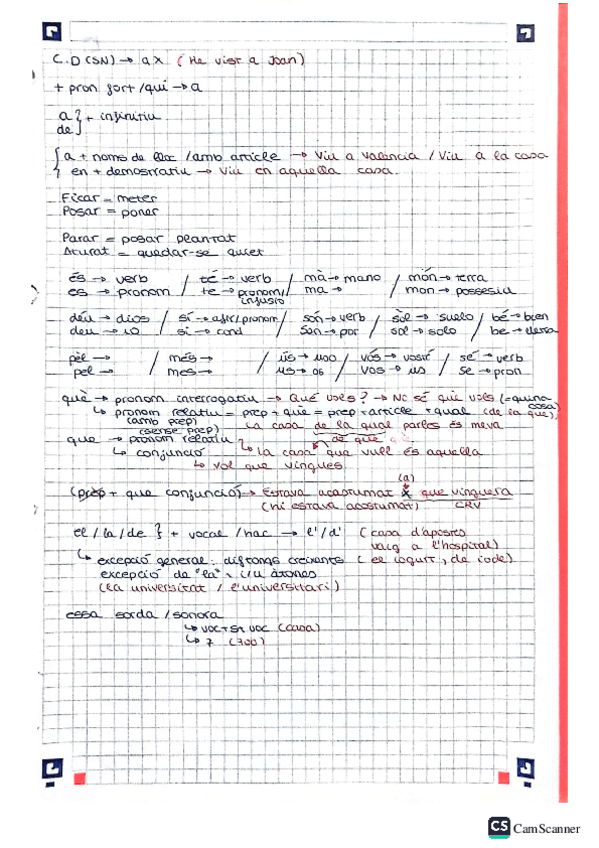 C.D (SN) → a X (He vist a Joan)
+ pron fort / qui → a
a } + infinitiu
de
a + noms de lloc / amb article → Viu a València / Viu a la casa
en + demostratiu → Viu en aquella casa.
Ficar = meter
Posar = poner
Parar = posar plantat
Aturat = quedar-se quiet
és → verb / té → verb / mà → mano / món → terra
es → pronom / te → pronom/infusió / ma → / mon → possesiu
déu → dios / sí → afir/pronom / són → verb / sòl → suelo / bé → bien
deu → 10 / si → cond / son → / sol → solo / be →
pèl → / més → / ús → uso / vós → vosté / sé → verb
pel → / mes → / us → os / vos → us / se → pron
què → pronom interrogatiu → Què vols? → No sé què vols (= quina cosa)
↳ pronom relatiu = prep + què = prep + article + qual (de la que)
(amb prep)
(sense prep) La casa de la qual parles és meva
que → pronom relatiu de què
↳ conjunció ↳ la casa que vull és aquella
↳ vol que vingues
(prep + que conjunció) → Estava acostumat (a) X que vinguera
(hi estava acostumat) CRV
el / la / de } + vocal / hac → l' / d' (casa d'apostes
vaig a l'hospital)
↳ excepció general: diftongs creixents (el iogurt, de iode)
excepció de "la" i/u àtones
(la universitat / l'universitari)
essa sorda / sonora
↳ voc + s + voc (casa)
↳ z (zoo)
CS CamScanner